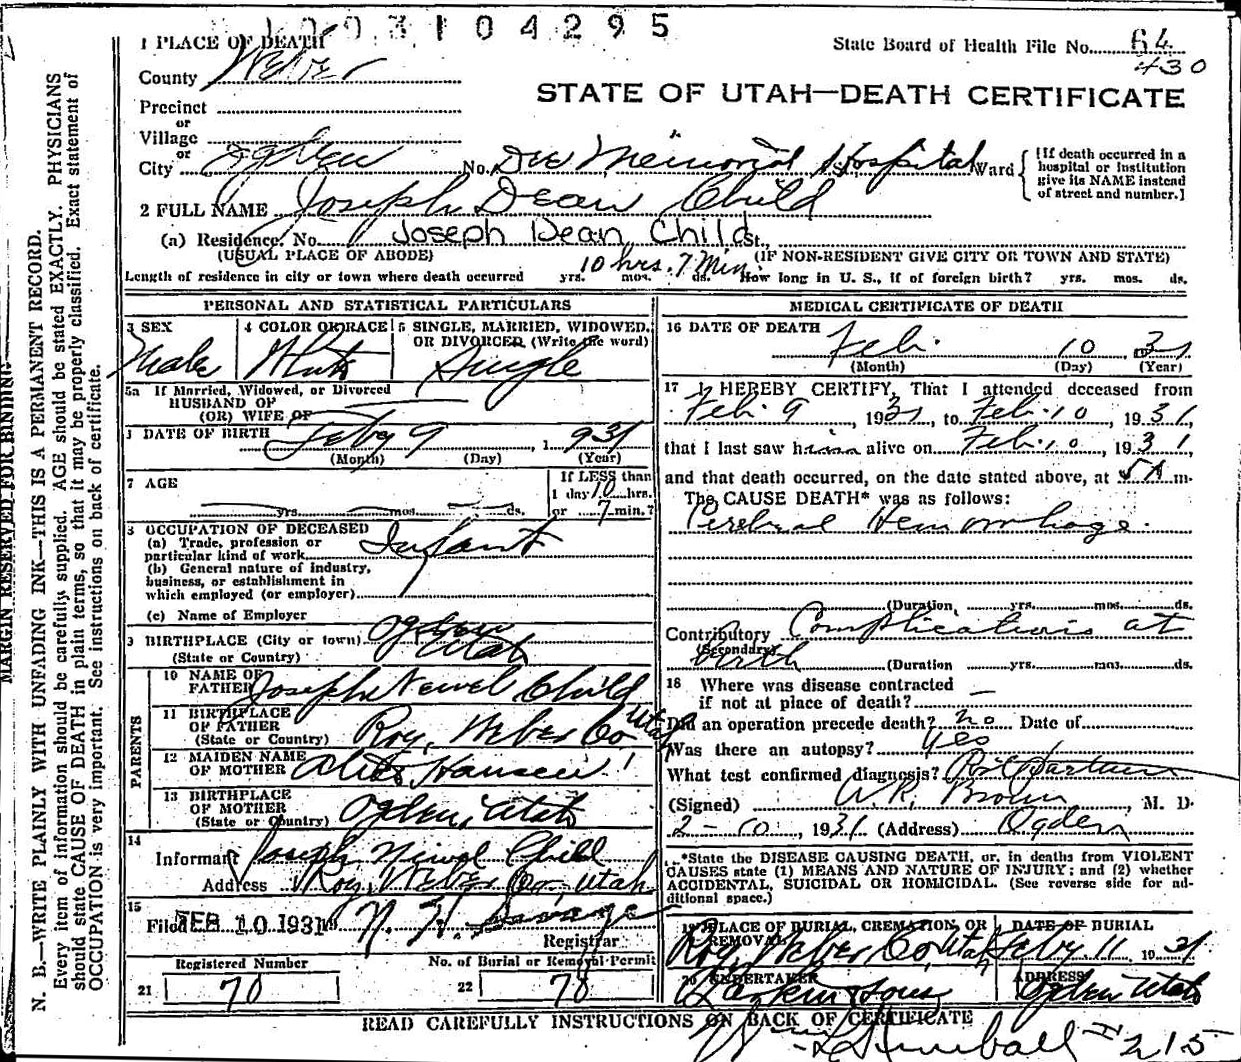 1003104295
1 PLACE OF DEATH
State Board of Health File No. 64
430
County Weber
STATE OF UTAH—DEATH CERTIFICATE
Precinct
or
Village
or
City Ogden No. Dee Memorial Hospital St., Ward
[If death occurred in a hospital or institution give its NAME instead of street and number.]
2 FULL NAME Joseph Dean Child
(a) Residence. No. Joseph Dean Child St.,
(USUAL PLACE OF ABODE) (IF NON-RESIDENT GIVE CITY OR TOWN AND STATE)
10 hrs. 7 Min.
Length of residence in city or town where death occurred yrs. mos. ds. How long in U. S., if of foreign birth? yrs. mos. ds.
PERSONAL AND STATISTICAL PARTICULARS
3 SEX Male
4 COLOR OR RACE White
5 SINGLE, MARRIED, WIDOWED, OR DIVORCED (Write the word) Single
5a If Married, Widowed, or Divorced
HUSBAND OF
(OR) WIFE OF
DATE OF BIRTH Feby 9 1931
(Month) (Day) (Year)
7 AGE yrs. mos. ds.
If LESS than
1 day 10 hrs.
or 7 min.?
8 OCCUPATION OF DECEASED
(a) Trade, profession or
particular kind of work Infant
(b) General nature of industry,
business, or establishment in
which employed (or employer)
(c) Name of Employer
9 BIRTHPLACE (City or town) Ogden
(State or Country) Utah
PARENTS
10 NAME OF
FATHER Joseph Newel Child
11 BIRTHPLACE
OF FATHER
(State or Country) Roy, Weber Co Utah
12 MAIDEN NAME
OF MOTHER Hansen
13 BIRTHPLACE
OF MOTHER
(State or Country) Ogden, Utah
14
Informant Joseph Newel Child
Address Roy, Weber Co., Utah
15
Filed FEB 10 1931 19
Registrar
Registered Number
21 70
No. of Burial or Removal Permit
22 78
MEDICAL CERTIFICATE OF DEATH
16 DATE OF DEATH
Feb. 10 1931
(Month) (Day) (Year)
17 I HEREBY CERTIFY, That I attended deceased from
Feb. 9, 1931, to Feb. 10, 1931,
that I last saw him alive on Feb. 10, 1931,
and that death occurred, on the date stated above, at 5A m.
The CAUSE DEATH* was as follows:
Cerebral Hemorrhage.
(Duration, yrs. mos. ds.
Contributory Complications at
(Secondary)
birth (Duration yrs. mos. ds.
18 Where was disease contracted
if not at place of death? —
Did an operation precede death? no Date of
Was there an autopsy? Yes
What test confirmed diagnosis?
(Signed) W.R. Brown, M. D.
2-10, 1931 (Address) Ogden
*State the DISEASE CAUSING DEATH, or, in deaths from VIOLENT
CAUSES state (1) MEANS AND NATURE OF INJURY; and (2) whether
ACCIDENTAL, SUICIDAL OR HOMICIDAL. (See reverse side for additional space.)
19 PLACE OF BURIAL, CREMATION, OR REMOVAL
Roy, Weber Co, Utah
DATE OF BURIAL
Feby 11 1931
20 UNDERTAKER
Larkin & Sons
ADDRESS
Ogden Utah
READ CAREFULLY INSTRUCTIONS ON BACK OF CERTIFICATE
Kimball
215
MARGIN RESERVED FOR BINDING
N. B.—WRITE PLAINLY WITH UNFADING INK—THIS IS A PERMANENT RECORD.
Every item of information should be carefully supplied. AGE should be stated EXACTLY. PHYSICIANS
should state CAUSE OF DEATH in plain terms, so that it may be properly classified. Exact statement of
OCCUPATION is very important. See instructions on back of certificate.